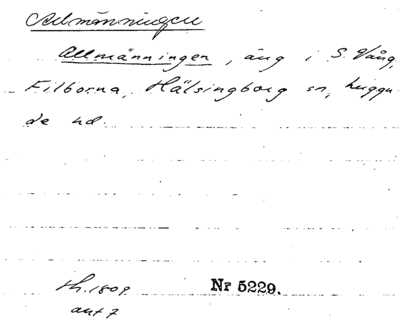 Allmänningen
Allmänningen, äng i S. Vång,
Filborna, Hälsingborg sn, Luggu
de hd.
Nr 5229.
akt 7